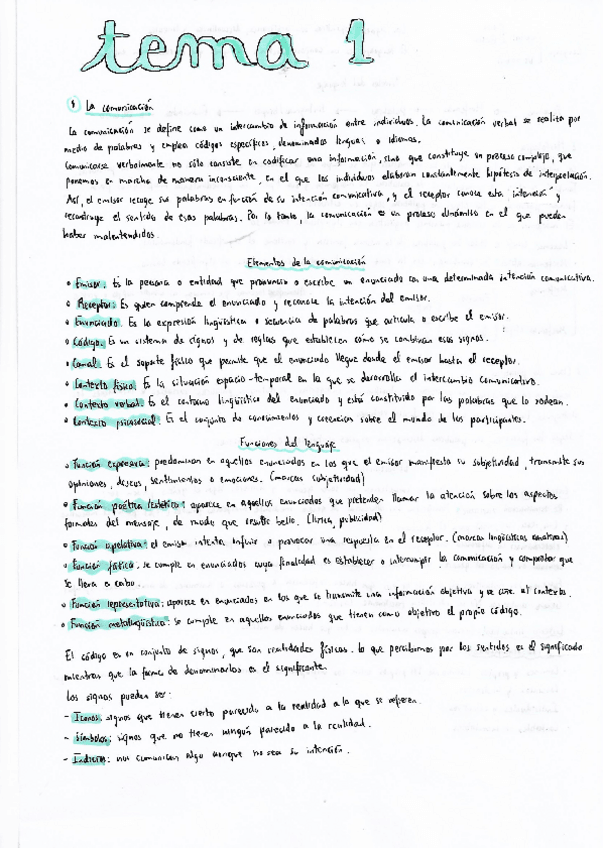 tema 1
1 La comunicación
La comunicación se define como un intercambio de información entre individuos. La comunicación verbal se realiza por
medio de palabras y emplea códigos específicos, denominados lenguas o idiomas.
Comunicarse verbalmente no sólo consiste en codificar una información, sino que constituye un proceso complejo, que
ponemos en marcha de manera inconsciente, en el que los individuos elaboran constantemente hipótesis de interpretación.
Así, el emisor escoge sus palabras en función de su intención comunicativa, y el receptor conoce esta intención y
reconstruye el sentido de esas palabras. Por lo tanto, la comunicación es un proceso dinámico en el que pueden
haber malentendidos.
Elementos de la comunicación
• Emisor: Es la persona o entidad que pronuncia o escribe un enunciado con una determinada intención comunicativa.
• Receptor: Es quien comprende el enunciado y reconoce la intención del emisor.
• Enunciado: Es la expresión lingüística o secuencia de palabras que articula o escribe el emisor.
• Código: Es un sistema de signos y de reglas que establecen cómo se combinan esos signos.
• Canal: Es el soporte físico que permite que el enunciado llegue desde el emisor hasta el receptor.
• Contexto físico: Es la situación espacio-temporal en la que se desarrolla el intercambio comunicativo.
• Contexto verbal: Es el entorno lingüístico del enunciado y está constituido por las palabras que lo rodean.
• Contexto psicosocial: Es el conjunto de conocimientos y creencias sobre el mundo de los participantes.
Funciones del lenguaje
• Función expresiva: predominan en aquellos enunciados en los que el emisor manifiesta su subjetividad, transmite sus
opiniones, deseos, sentimientos o emociones. (marcas subjetividad)
• Función poética/estética: aparece en aquellos enunciados que pretenden llamar la atención sobre los aspectos
formales del mensaje, de modo que resulte bello. (lírica, publicidad)
• Función apelativa: el emisor intenta influir o provocar una respuesta en el receptor. (marcas lingüísticas)
• Función fática: se cumple en enunciados cuya finalidad es establecer o interrumpir la comunicación y comprobar que
se lleva a cabo.
• Función representativa: aparece en enunciados en los que se transmite una información objetiva y se ciñe al contexto.
• Función metalingüística: se cumple en aquellos enunciados que tienen como objetivo el propio código.
El código es un conjunto de signos, que son realidades físicas. lo que percibimos por los sentidos es el significado
mientras que la forma de denominarlos es el significante.
Los signos pueden ser:
- Iconos: signos que tienen cierto parecido a la realidad a la que se refieren.
- Símbolos: signos que no tienen ningún parecido a la realidad.
- Indicios: nos comunican algo aunque no sea su intención.